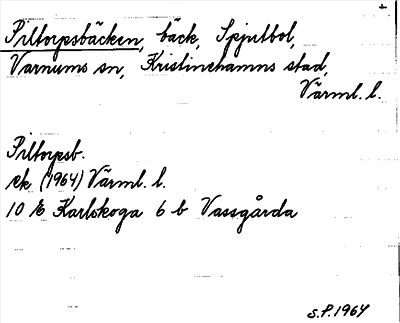 Piltorpsbäcken, bäck, Spjutbol,
Varnums sn, Kristinehamns stad,
Värml. l.
Piltorpsb.
ek (1964) Värml. l.
10 E Karlskoga 6 b Vassgårda
S.P. 1964